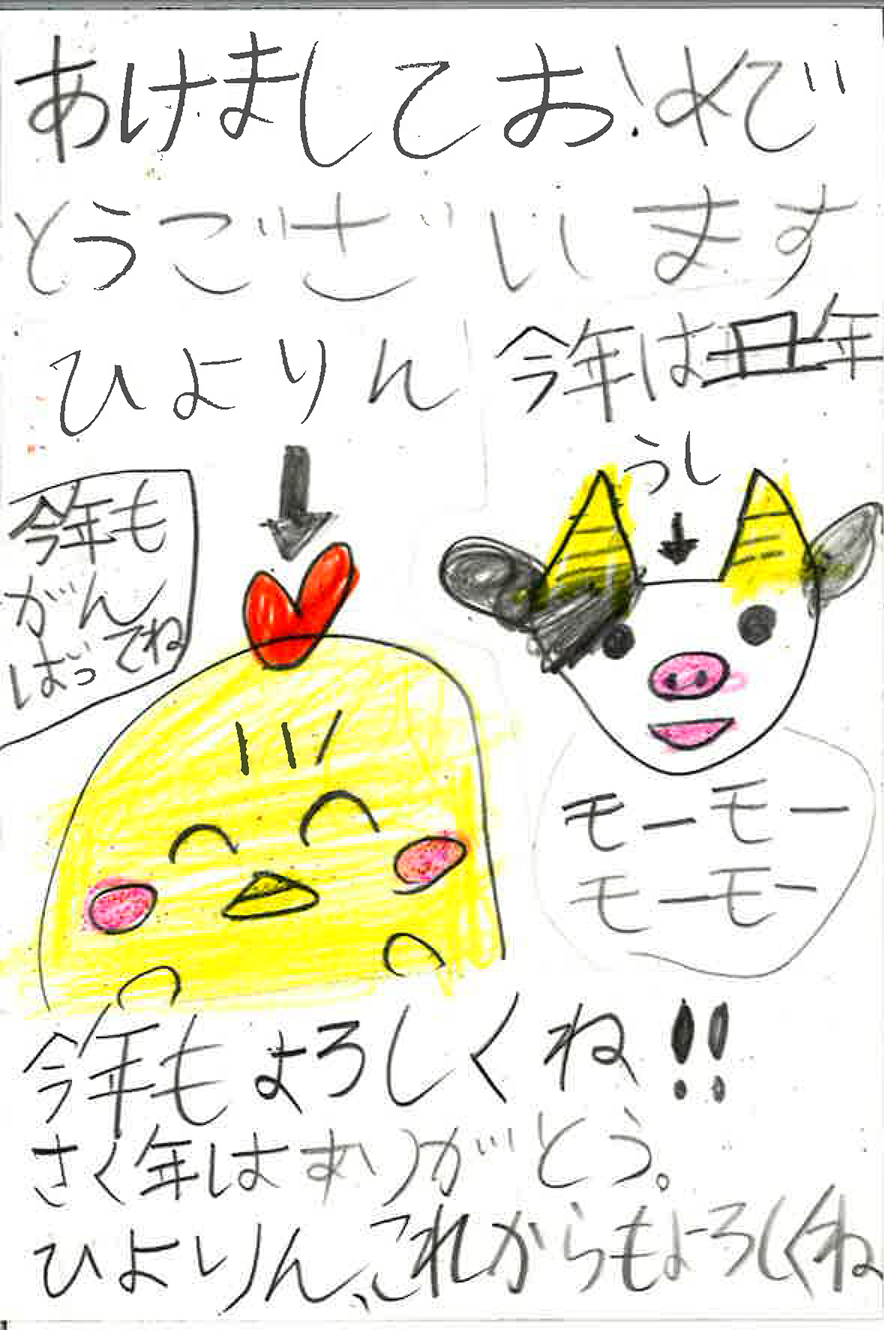 あけましておめで
とうございます
ひよりん
今年は丑年
うし
今年も
がん
ばってね
モーモー
モーモー
今年もよろしくね!!
さく年はありがとう。
ひよりん、これからもよろしくね